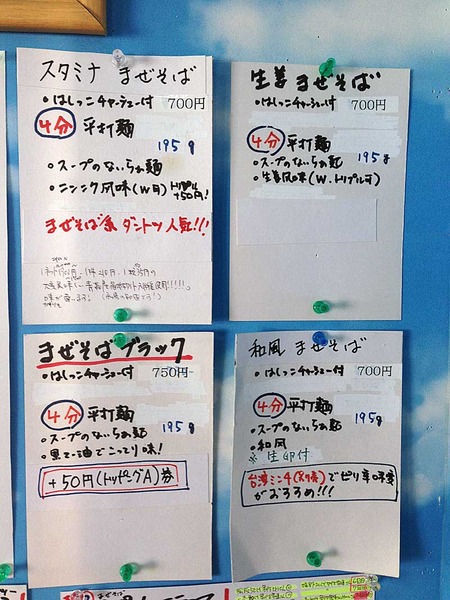 スタミナ まぜそば
・はしっこチャーシュー付 700円
4分 平打麺
195g
・スープのないらぁ麺
・ニンニク風味(W可)トリプル+50円!
まぜそば系 ダントツ人気!!!
生姜まぜそば
・はしっこチャーシュー付 700円
4分 平打麺
195g
・スープのないらぁ麺
・生姜風味(W.トリプル可)
まぜそばブラック
・はしっこチャーシュー付 750円
4分 平打麺
195g
・スープのないらぁ麺
・黒マー油でこってり味!
+50円(トッピングA)券
和風 まぜそば
・はしっこチャーシュー付 700円
4分 平打麺
195g
・スープのないらぁ麺
・和風
※生卵付
台湾ミンチ(別売)でピリ辛味変
がおススメ!!!